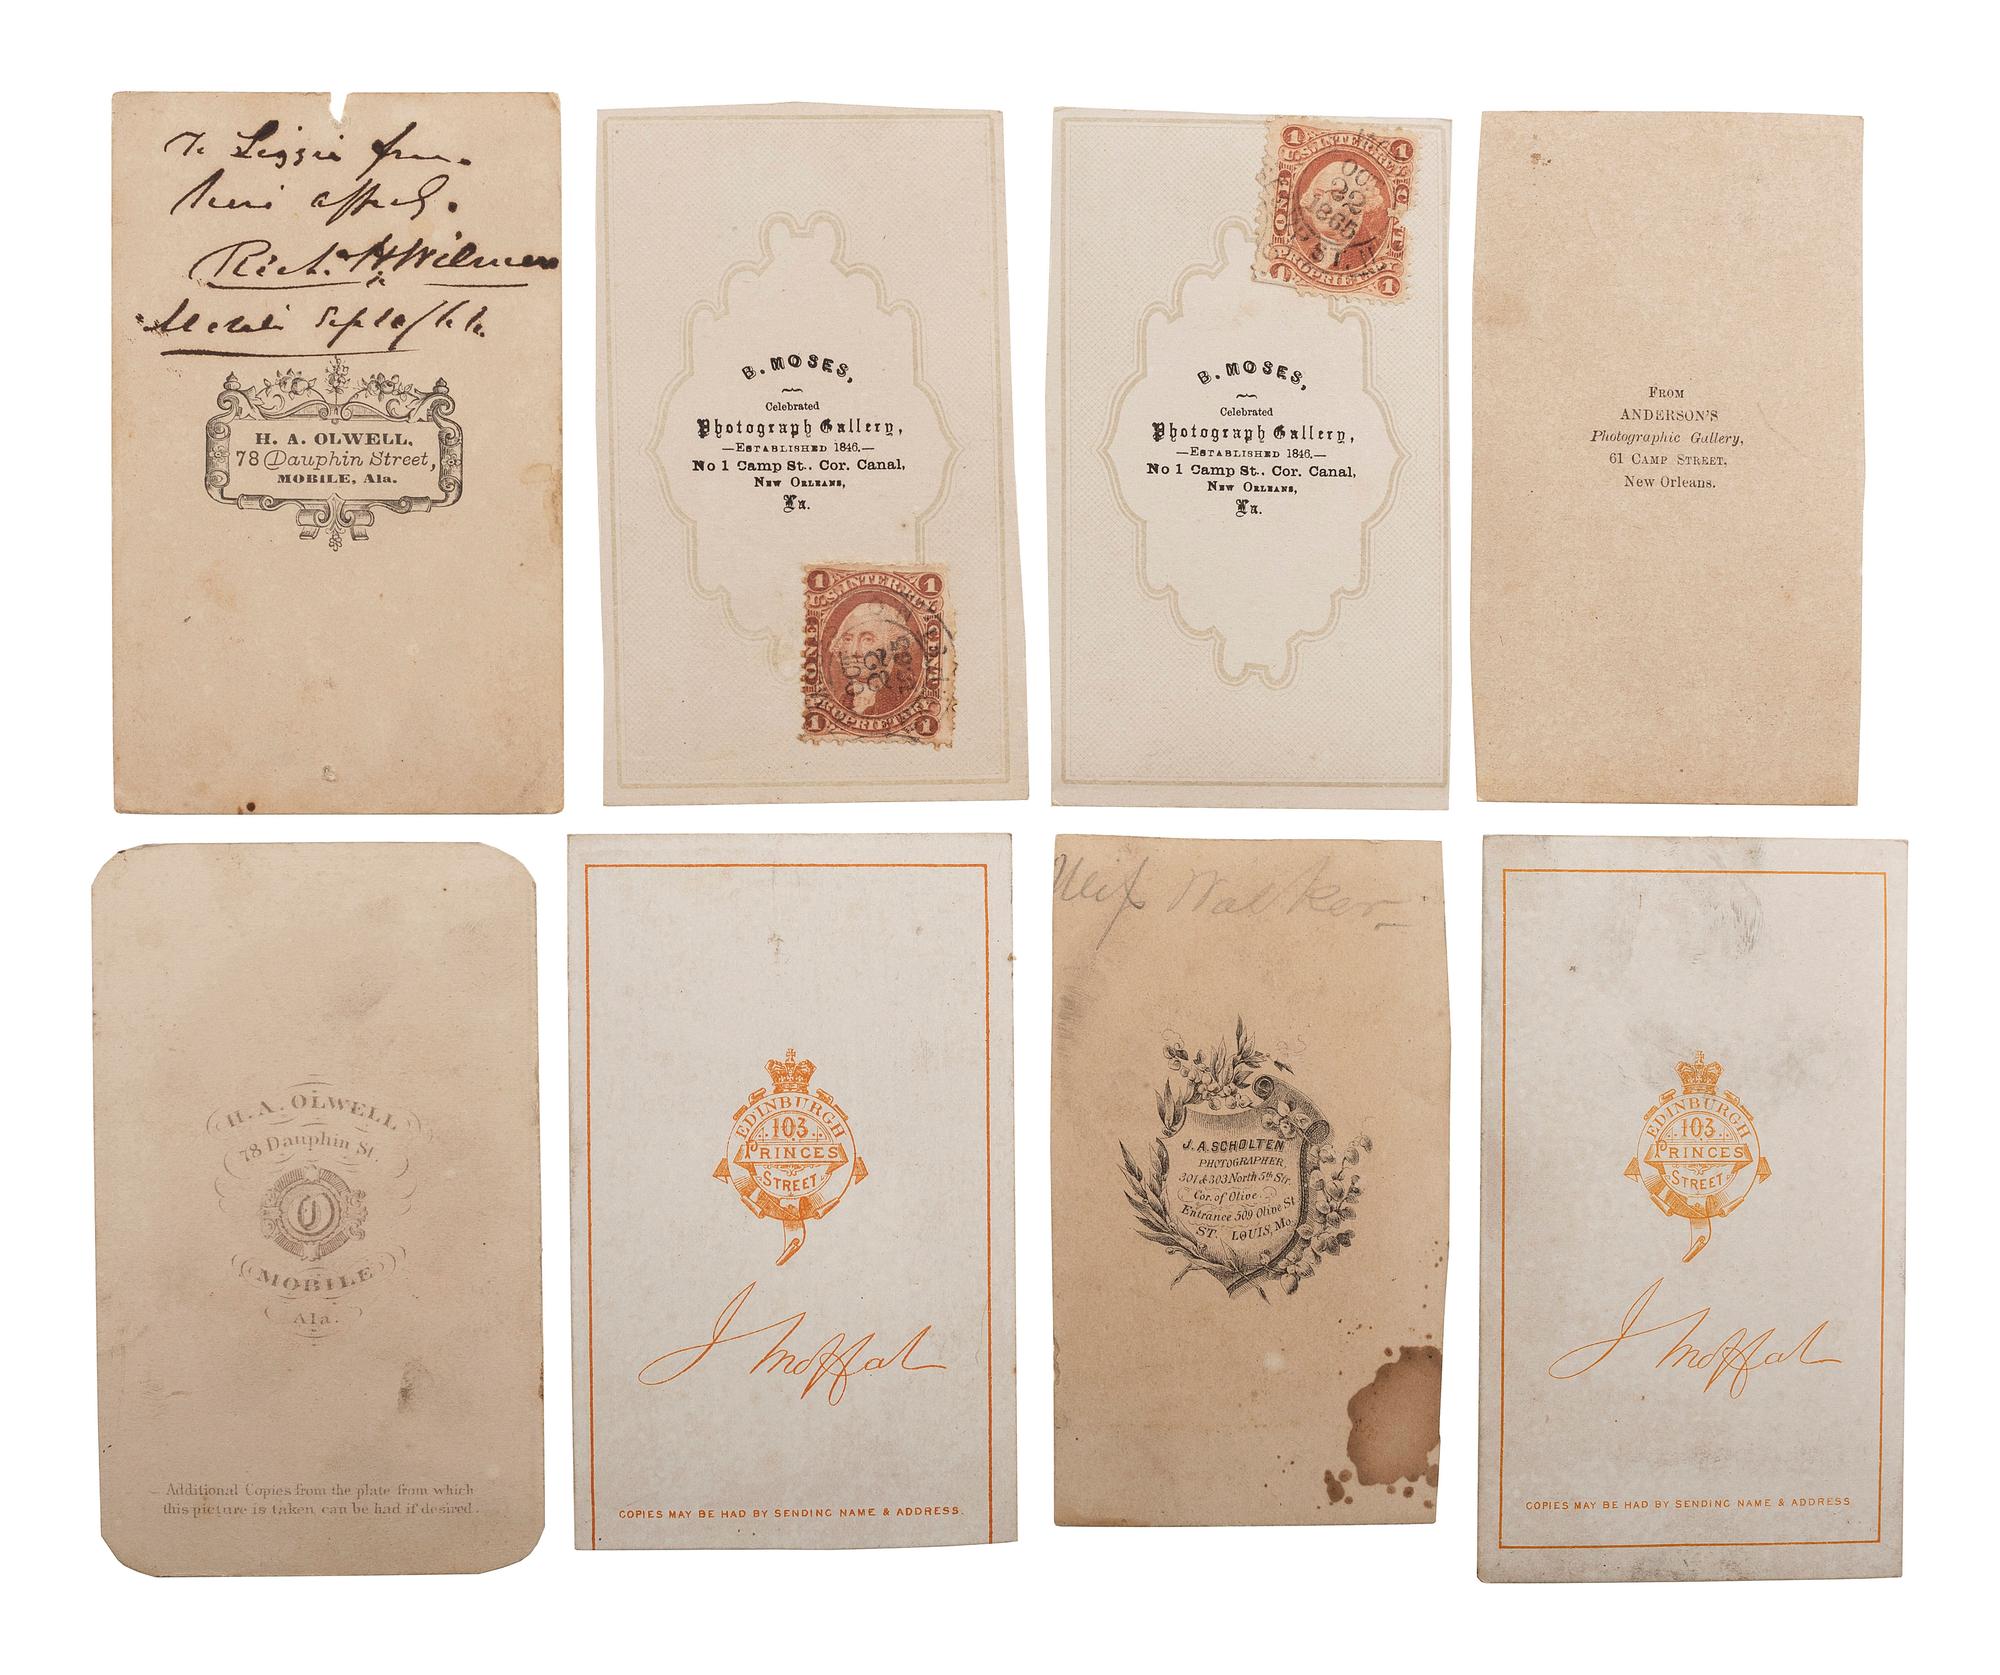 To Lizzie from
Rich. H Wilmer
H. A. OLWELL,
78 Dauphin Street,
MOBILE, Ala.
B. MOSES,
Celebrated
Photograph Gallery,
—ESTABLISHED 1846.—
No 1 Camp St.. Cor. Canal,
NEW ORLEANS,
La.
1 U.S. INTER. REV. 1
ONE CENT
OCT
22
1865
1 PROPRIETARY 1
1 U.S. INTER. REV. 1
ONE CENT
OCT
22
1865
1 PROPRIETARY 1
B. MOSES,
Celebrated
Photograph Gallery,
—ESTABLISHED 1846.—
No 1 Camp St.. Cor. Canal,
NEW ORLEANS,
La.
FROM
ANDERSON'S
Photographic Gallery,
61 CAMP STREET,
New Orleans.
H. A. OLWELL
78 Dauphin St.
O
MOBILE
Ala.
Additional Copies from the plate from which
this picture is taken can be had if desired.
EDINBURGH
103
PRINCES
STREET
J Moffat
COPIES MAY BE HAD BY SENDING NAME & ADDRESS.
Walker
J. A. SCHOLTEN
PHOTOGRAPHER,
301 & 303 North 5th Str.
Cor. of Olive.
Entrance 509 Olive St
ST. LOUIS, Mo.
EDINBURGH
103
PRINCES
STREET
J Moffat
COPIES MAY BE HAD BY SENDING NAME & ADDRESS